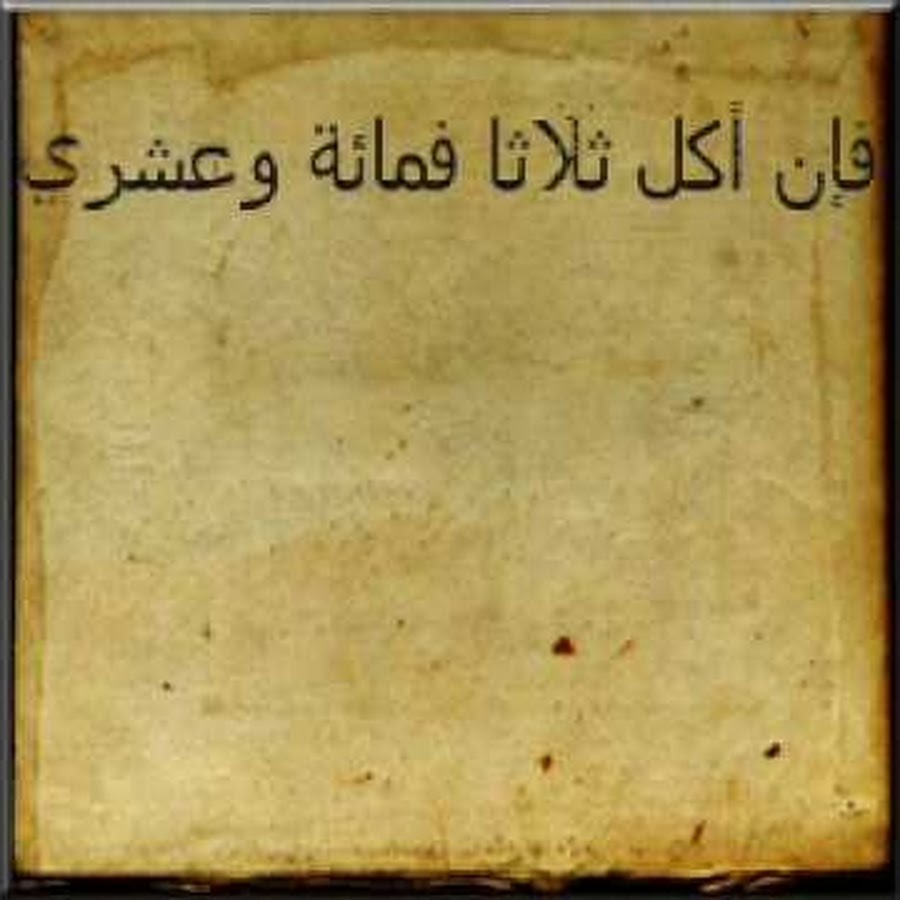 فإن أكل ثلاثا فمائة وعشري